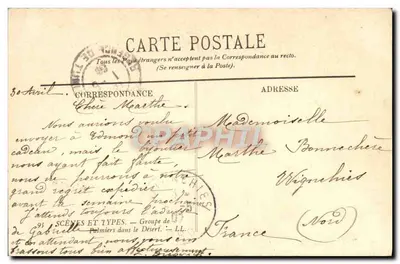 CARTE POSTALE
Tous les Pays étrangers n'acceptent pas la Correspondance au recto.
(Se renseigner à la Poste).
CORRESPONDANCE
ADRESSE
30 Avril
Chère Marthe
Nous aurions voulu
envoyer à Edmond un petit
cadeau, mais le bijoutier
nous ayant fait faute,
nous ne pourrons à notre
grand regret expédier
avant la semaine prochaine
J'attends toujours l'adresse
de Gabrielle
et en attendant nous vous
embrassons tous bien affectueusement
SCÈNES ET TYPES. - Groupe de
Palmiers dans le Désert. - LL.
Mademoiselle
Marthe Bonnechère
Wignehies
(Nord)
France
REGENCE DE TUNIS